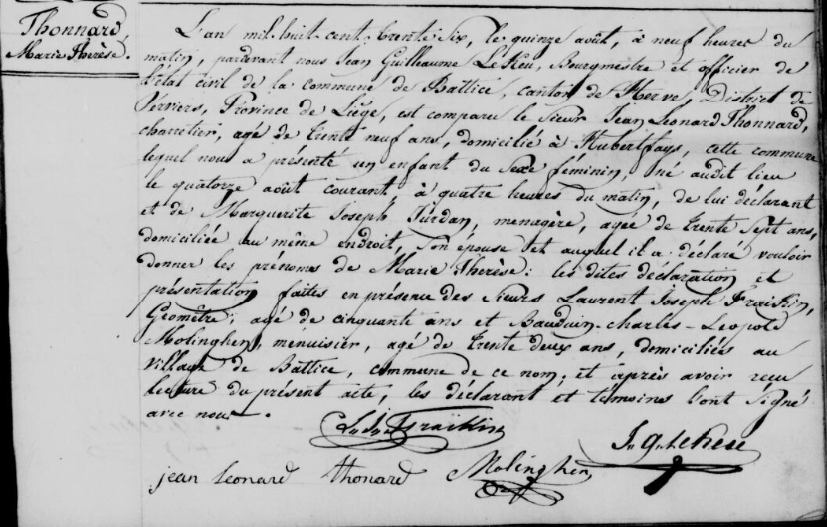 Thonnard,
Marie Therèse.
L'an mil-huit-cent-trente six, le quinze août, à neuf heures du
matin, pardevant nous Jean Guillaume LeKeu, Bourgmestre et officier de
l'état civil de la commune de Battice, canton de Herve, District de
Verviers, Province de Liège, est comparu le sieur Jean Leonard Thonnard,
charretier, agé de trente neuf ans, domicilié à Hubertfays, cette commune
lequel nous a présenté un enfant du sexe féminin, né audit lieu
le quatorze août courant, à quatre heures du matin, de lui déclarant
et de Marguerite Joseph Jurdan, menagère, agée de trente sept ans,
domiciliée au même endroit, son épouse et auquel il a déclaré vouloir
donner les prénoms de Marie Therèse: les dites déclaration et
présentation faites en présence des sieurs Laurent Joseph Fraikin,
Geomètre, agé de cinquante ans et Bauduin-charles-Leopold
Molinghen, menuisier, agé de trente deux ans, domiciliés au
village de Battice, commune de ce nom; et après avoir reçu
lecture du présent acte, les déclarant et témoins l'ont signé
avec nous.
Fraikin
jean leonard thonard Molinghen